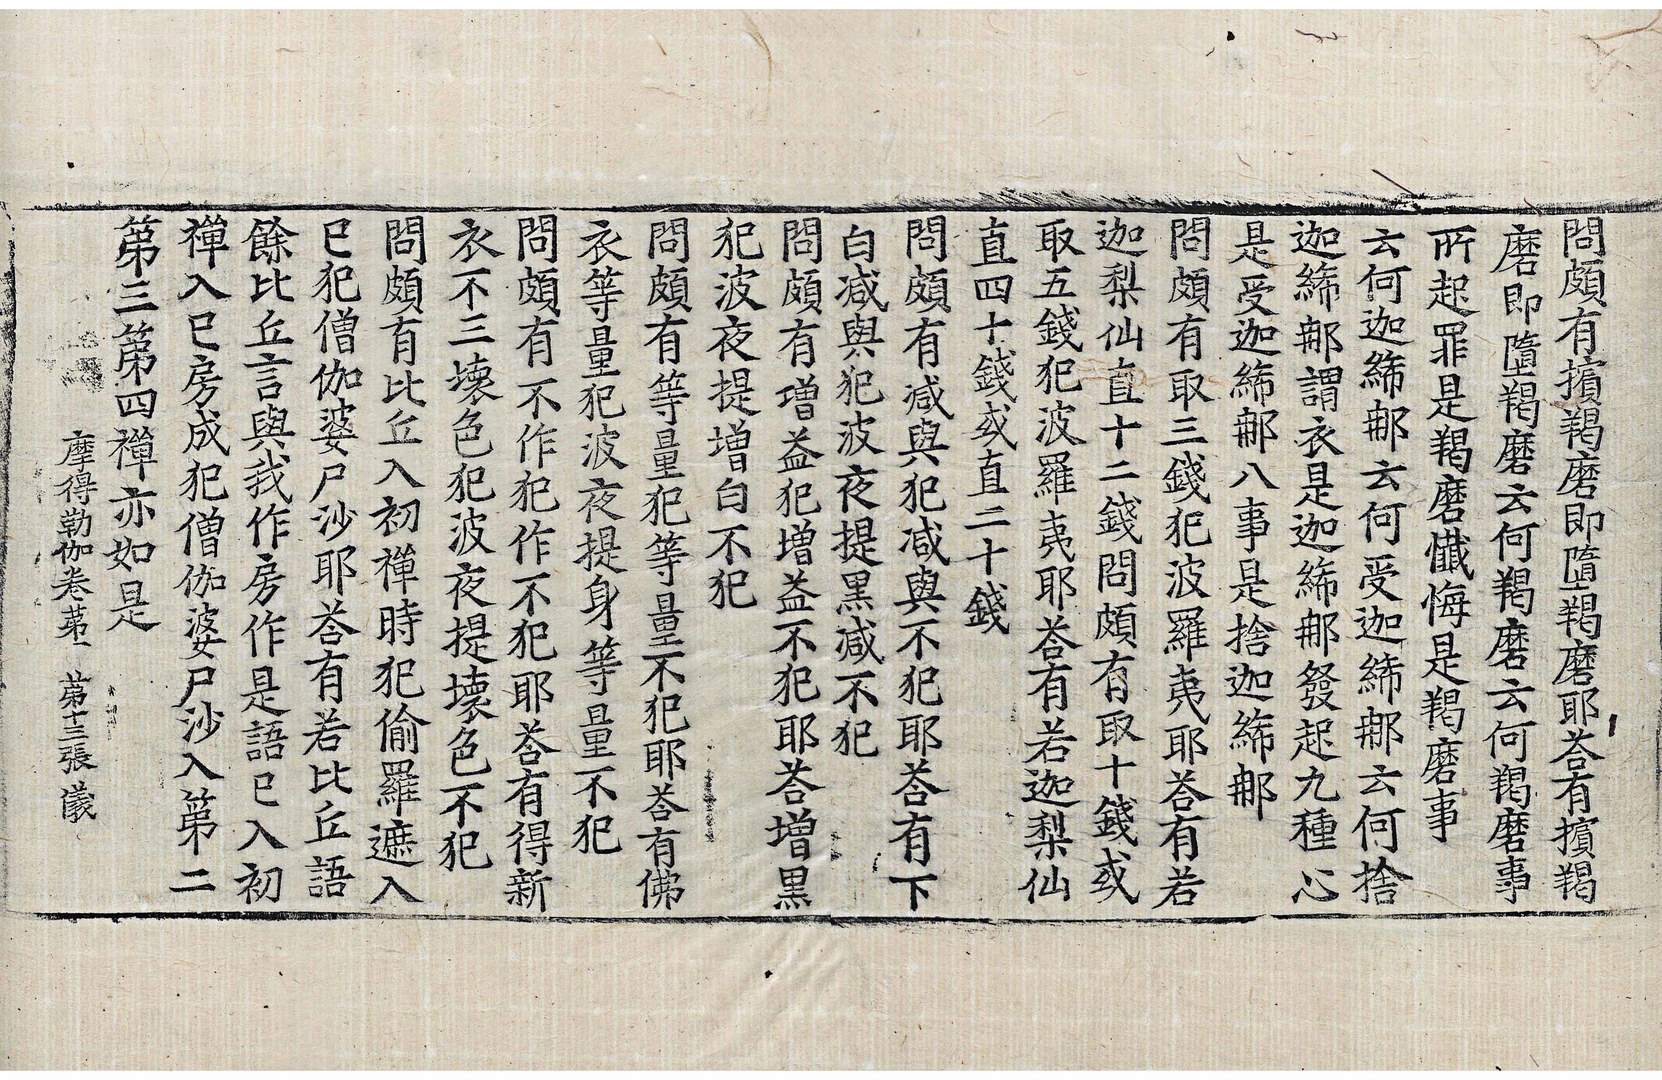 問頗有擯羯磨即墮羯磨耶荅有擯羯
磨即墮羯磨云何羯磨云何羯磨事
所起罪是羯磨懺悔是羯磨事
云何迦絺𨚗云何受迦絺𨚗云何捨
迦絺𨚗謂衣是迦絺𨚗發起九種心
是受迦絺𨚗八事是捨迦絺𨚗
問頗有取三錢犯波羅夷耶荅有若
迦梨仙直十二錢問頗有取十錢或
取五錢犯波羅夷耶荅有若迦梨仙
直四十錢或直二十錢
問頗有減與犯減與不犯耶荅有下
白減與犯波夜提黑減不犯
問頗有增益犯增益不犯耶荅增黑
犯波夜提增白不犯
問頗有等量犯等量不犯耶荅有佛
衣等量犯波夜提身等量不犯
問頗有不作犯作不犯耶荅有得新
衣不三壞色犯波夜提壞色不犯
問頗有比丘入初禪時犯偷羅遮入
已犯僧伽婆尸沙耶荅有若比丘語
餘比丘言與我作房作是語已入初
禪入已房成犯僧伽婆尸沙入第二
第三第四禪亦如是
摩得勒伽卷苐一　第十三張　儀